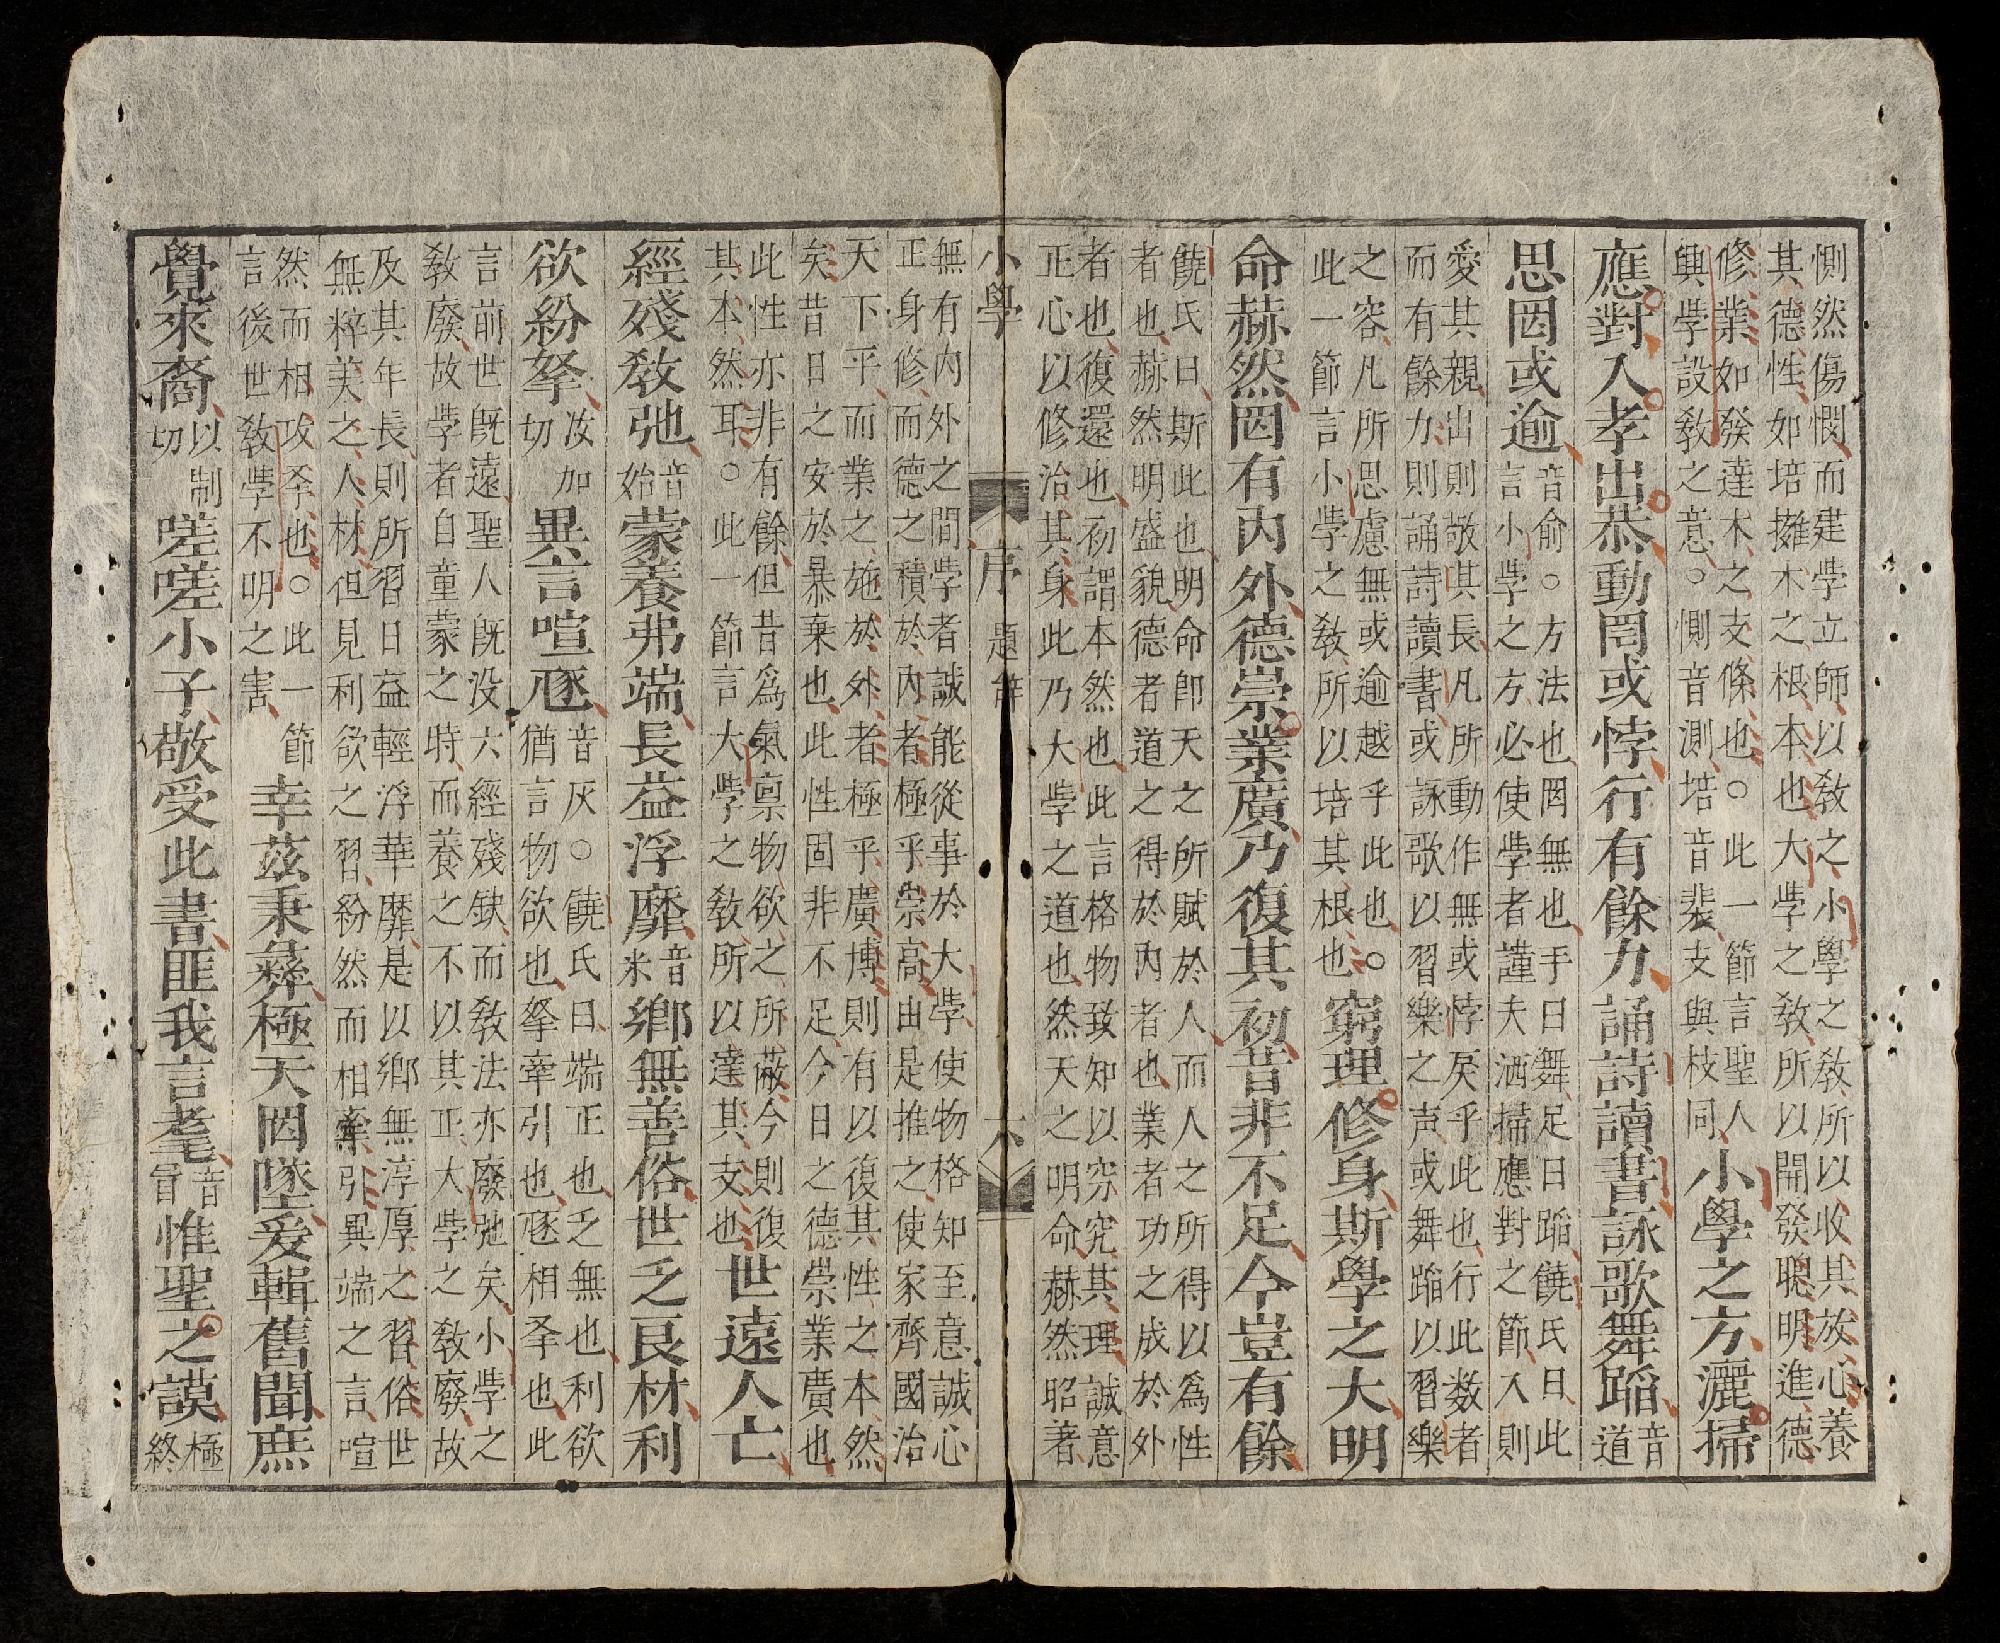 惻然傷憫而建學立師以敎之小學之敎所以收其放心養
其德性如培擁木之根本也大學之敎所以開發聰明進德
修業如發達木之支條也○此一節言聖人
興學設敎之意○惻音測培音裴支與枝同
小學之方灑掃
應對入孝出恭動罔或悖行有餘力誦詩讀書詠歌舞蹈
音道
思罔或逾
音俞○方法也罔無也手曰舞足曰蹈饒氏曰此
言小學之方必使學者謹夫洒掃應對之節入則
愛其親出則敬其長凡所動作無或悖戾乎此也行此数者
而有餘力則誦詩讀書或詠歌以習樂之声或舞蹈以習樂
之容凡所思慮無或逾越乎此也○
此一節言小學之敎所以培其根也
窮理修身斯學之大明
命赫然罔有內外德崇業廣乃復其初昔非不足今豈有餘
饒氏曰斯此也明命卽天之所賦於人而人之所得以爲性
者也赫然明盛貌德者道之得於內者也業者功之成於外
者也復還也初謂本然也此言格物致知以究其理誠意
正心以修治其身此乃大學之道也然天之明命赫然昭著
小學 序 題辞 六
無有內外之間學者誠能從事於大學使物格知至意誠心
正身修而德之積於內者極乎崇高由是推之使家齊國治
天下平而業之施於外者極乎廣博則有以復其性之本然
矣昔日之安於暴棄也此性固非不足今日之德崇業廣也
此性亦非有餘但昔爲氣禀物欲之所蔽今則復
其本然耳○此一節言大學之敎所以達其支也
世遠人亡
經殘敎弛
音始
蒙養弗端長益浮靡
音米
鄕無善俗世乏良材利
欲紛拏
汝加切
異言喧豗
音灰○饒氏曰端正也乏無也利欲
猶言物欲也拏牽引也豗相夅也此
言前世旣遠聖人旣没六經殘缺而敎法亦廢弛矣小學之
敎廢故學者自童蒙之時而養之不以其正大學之敎廢故
及其年長則所習日益輕浮華靡是以鄕無淳厚之習俗世
無粹美之人材但見利欲之習紛然而相牽引異端之言喧
然而相攻夅也○此一節
言後世敎學不明之害
幸茲秉彝極天罔墜爰輯舊聞庶
覺來裔
以制切
嗟嗟小子敬受此書匪我言耄
音冒
惟聖之謨
極
終